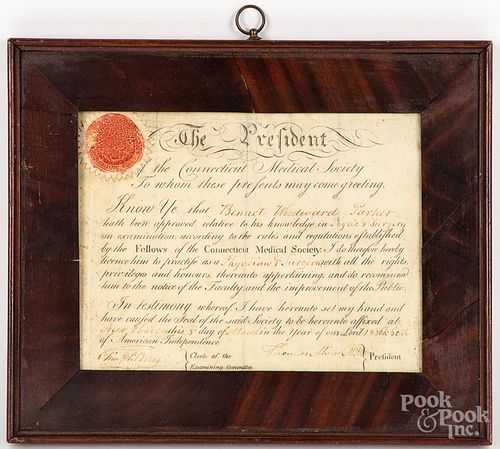 The President
of the Connecticut Medical Society
To whom these presents may come greeting.
Know Ye that Bennet Woodward Parker
hath been approved, relative to his knowledge in Physic & Surgery
on examination according to the rules and regulations established
by the Fellows of the Connecticut Medical Society. I do therefore hereby
licence him to practise as a Physician & Surgeon with all the rights,
privileges and honours thereunto appertaining and do recommend
him to the notice of the Faculty and the improvement of the Public.
In testimony whereof I have hereunto set my hand and
have caused the Seal of the said Society to be hereunto affixed at
New Haven this day of March in the Year of our Lord
of American Independence
Clerk of the
Examining Committee
President
POOK
& POOK
Inc.